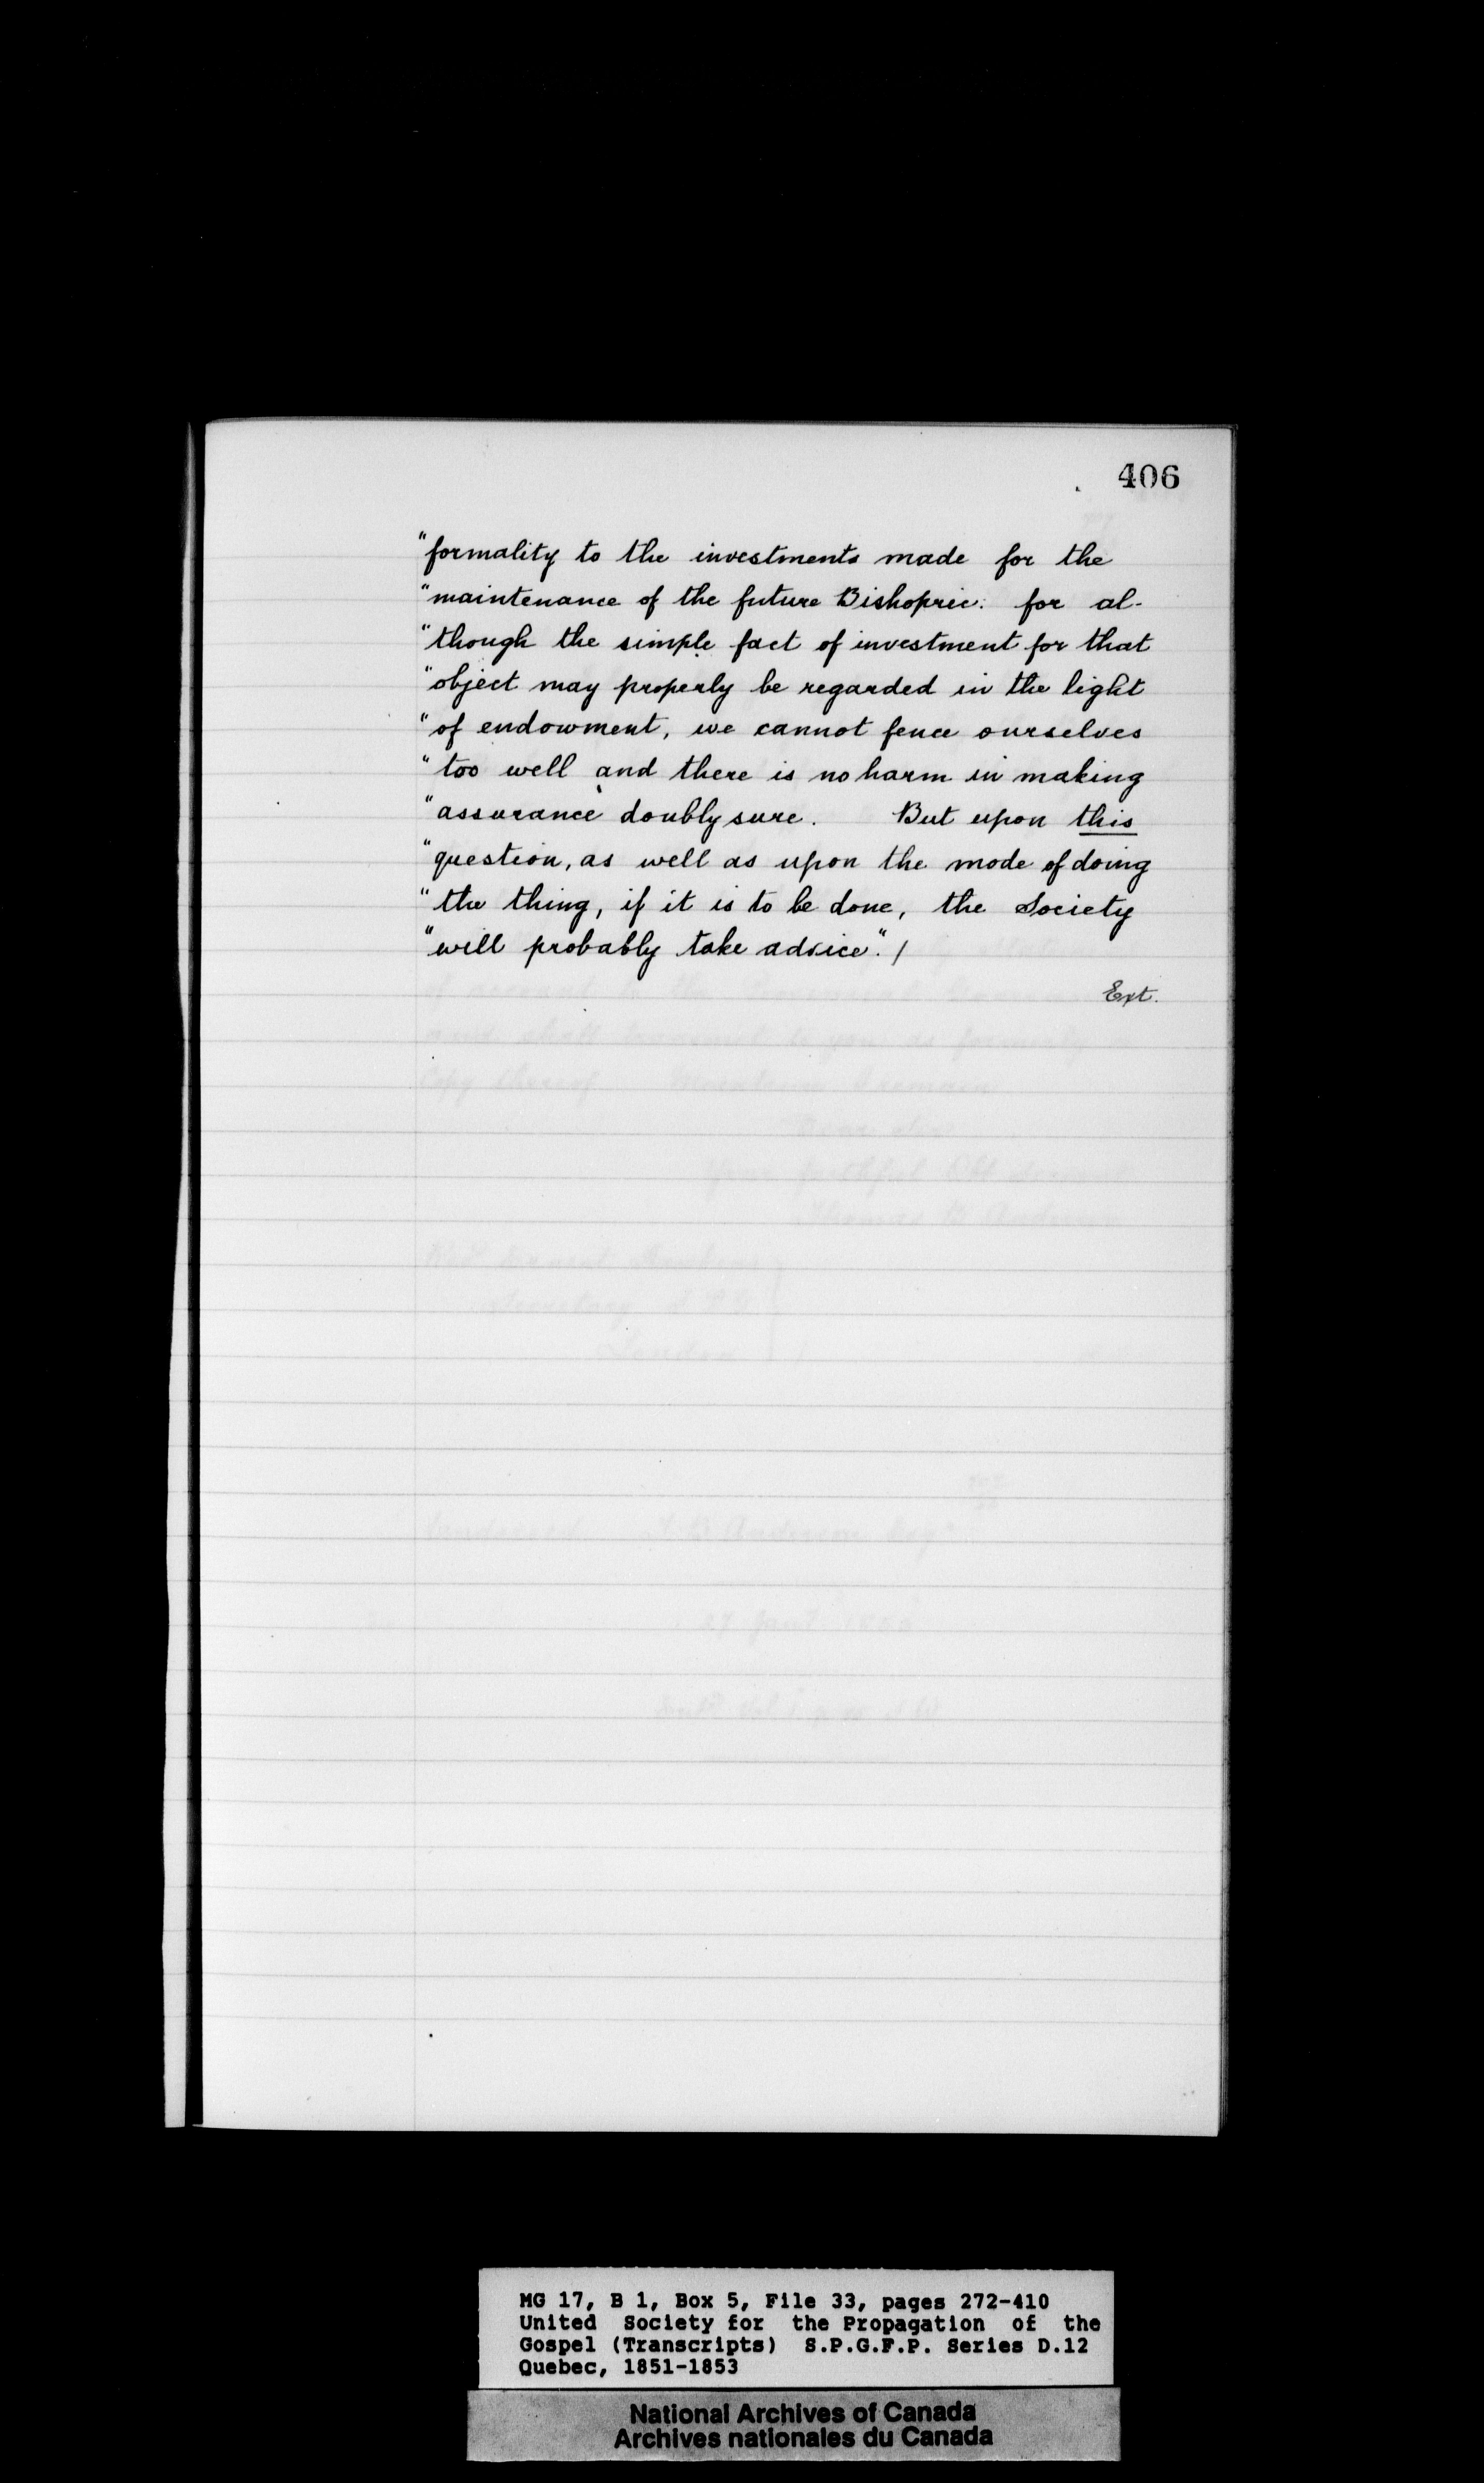 406
"formality to the investments made for the
"maintenance of the future Bishopric: for al-
"though the simple fact of investment for that
"object may properly be regarded in the light
"of endowment, we cannot fence ourselves
"too well and there is no harm in making
"assurance doubly sure. But upon this
"question, as well as upon the mode of doing
"the thing, if it is to be done, the Society
"will probably take advice". /
Ext.
MG 17, B 1, Box 5, File 33, pages 272-410
United Society for the Propagation of the
Gospel (Transcripts) S.P.G.F.P. Series D.12
Quebec, 1851-1853
National Archives of Canada
Archives nationales du Canada